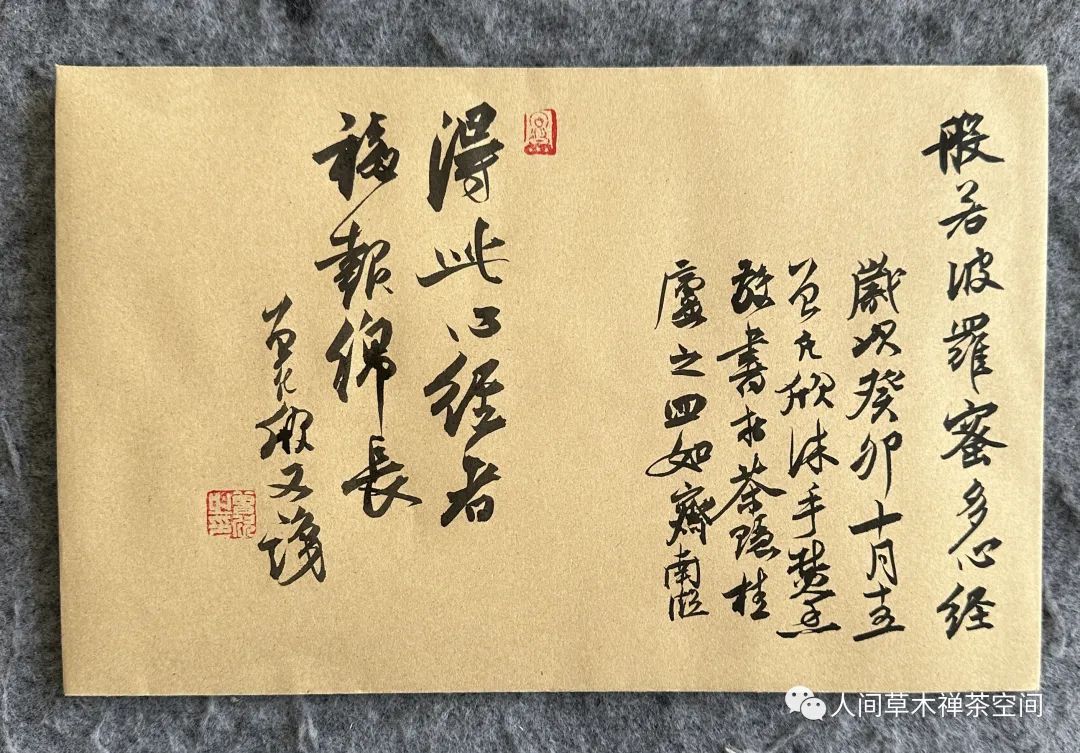 般若波羅蜜多心经
歲次癸卯十月十五
曾凡欣沐手焚香
敬書於茶隱桂
廬之四如齋南
得此心经者
福報綿長
曾凡欣又識
人间草木禅茶空间